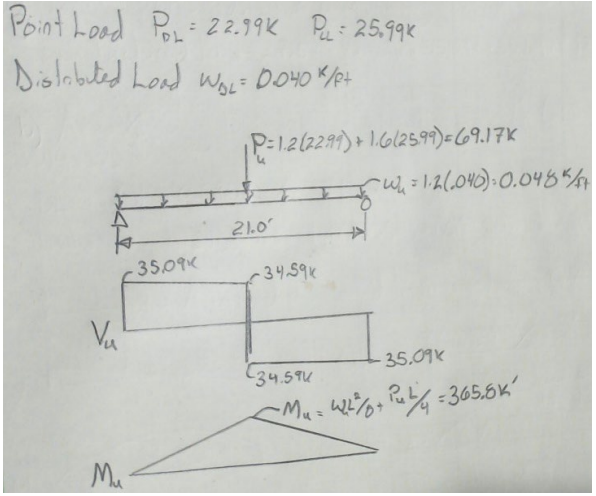 Point Load P_DL = 22.99K P_LL = 25.99K
Distributed Load W_DL = 0.040 K/ft
P_u = 1.2(22.99) + 1.6(25.99) = 69.17K
W_u = 1.2(.040) = 0.048 K/ft
21.0'
35.09K 34.59K
V_u
35.09K
34.59K
M_u = W_uL²/8 + P_uL/4 = 365.8K'
M_u